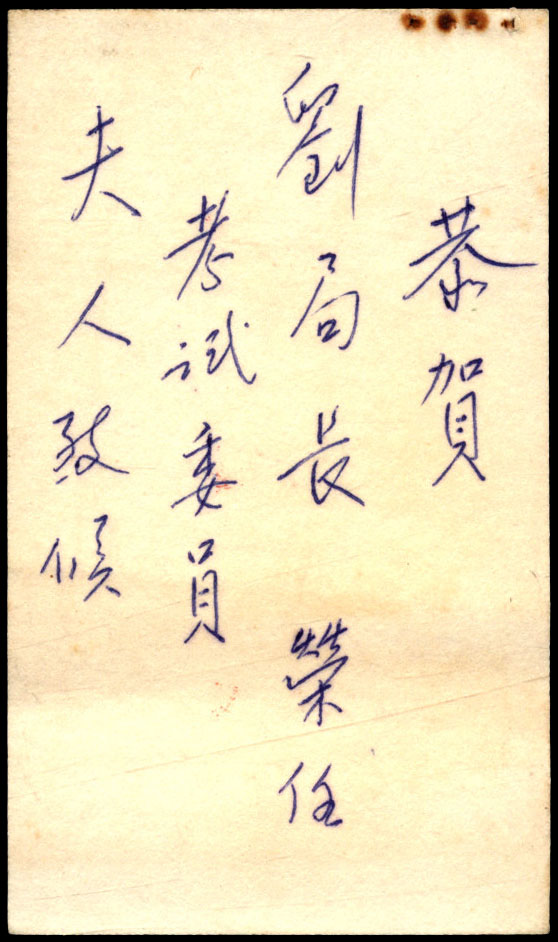 恭賀
劉局長 榮任
考試委員
夫人致候